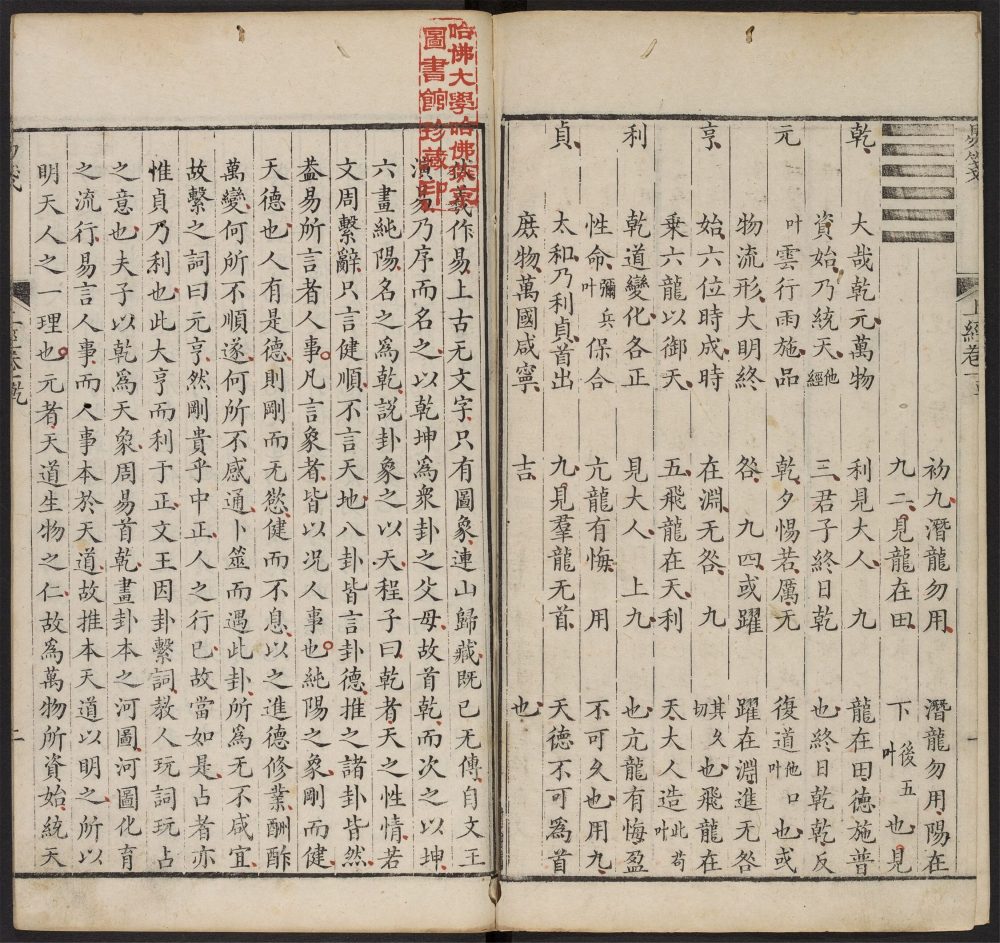 易箋
上經卷一
乾
元
亨
利
貞
大哉乾元萬物
資始乃統天他經
叶雲行雨施品
物流形大明終
始六位時成時
乘六龍以御天
乾道變化各正
性命叶彌兵保合
太和乃利貞首出
庶物萬國咸寧
初九潛龍勿用
九二見龍在田
利見大人　九
三君子終日乾
乾夕惕若厲无
咎　九四或躍
在淵无咎　九
五飛龍在天利
見大人　上九
亢龍有悔　用
九見羣龍无首
吉
潛龍勿用陽在
下叶後五也見
龍在田德施普
也終日乾乾反
復道叶他口也或
躍在淵進无咎
其久切也飛龍在
天大人造叶此苟
也亢龍有悔盈
不可久也用九
天德不可為首
也
一
哈佛大學哈佛燕京
圖書館珍藏印
伏羲作易上古无文字只有圖象連山歸藏既已无傳自文王
演易乃序而名之以乾坤為衆卦之父母故首乾而次之以坤
六畫純陽名之為乾説卦象之以天程子曰乾者天之性情若
文周繫辭只言健順不言天地八卦皆言卦德推之諸卦皆然
葢易所言者人事凡言象者皆以况人事也純陽之象剛而健
天德也人有是德則剛而无慾健而不息以之進德修業酬酢
萬變何所不順遂何所不感通卜筮而遇此卦所為无不咸宜
故繫之詞曰元亨然剛貴乎中正人之行已故當如是占者亦
惟貞乃利也此大亨而利于正文王因卦繫詞教人玩詞玩占
之意也夫子以乾為天象周易首乾畫卦本之河圖河圖化育
之流行易言人事而人事本於天道故推本天道以明之所以
明天人之一理也元者天道生物之仁故為萬物所資始統天
上經卷一乾
二